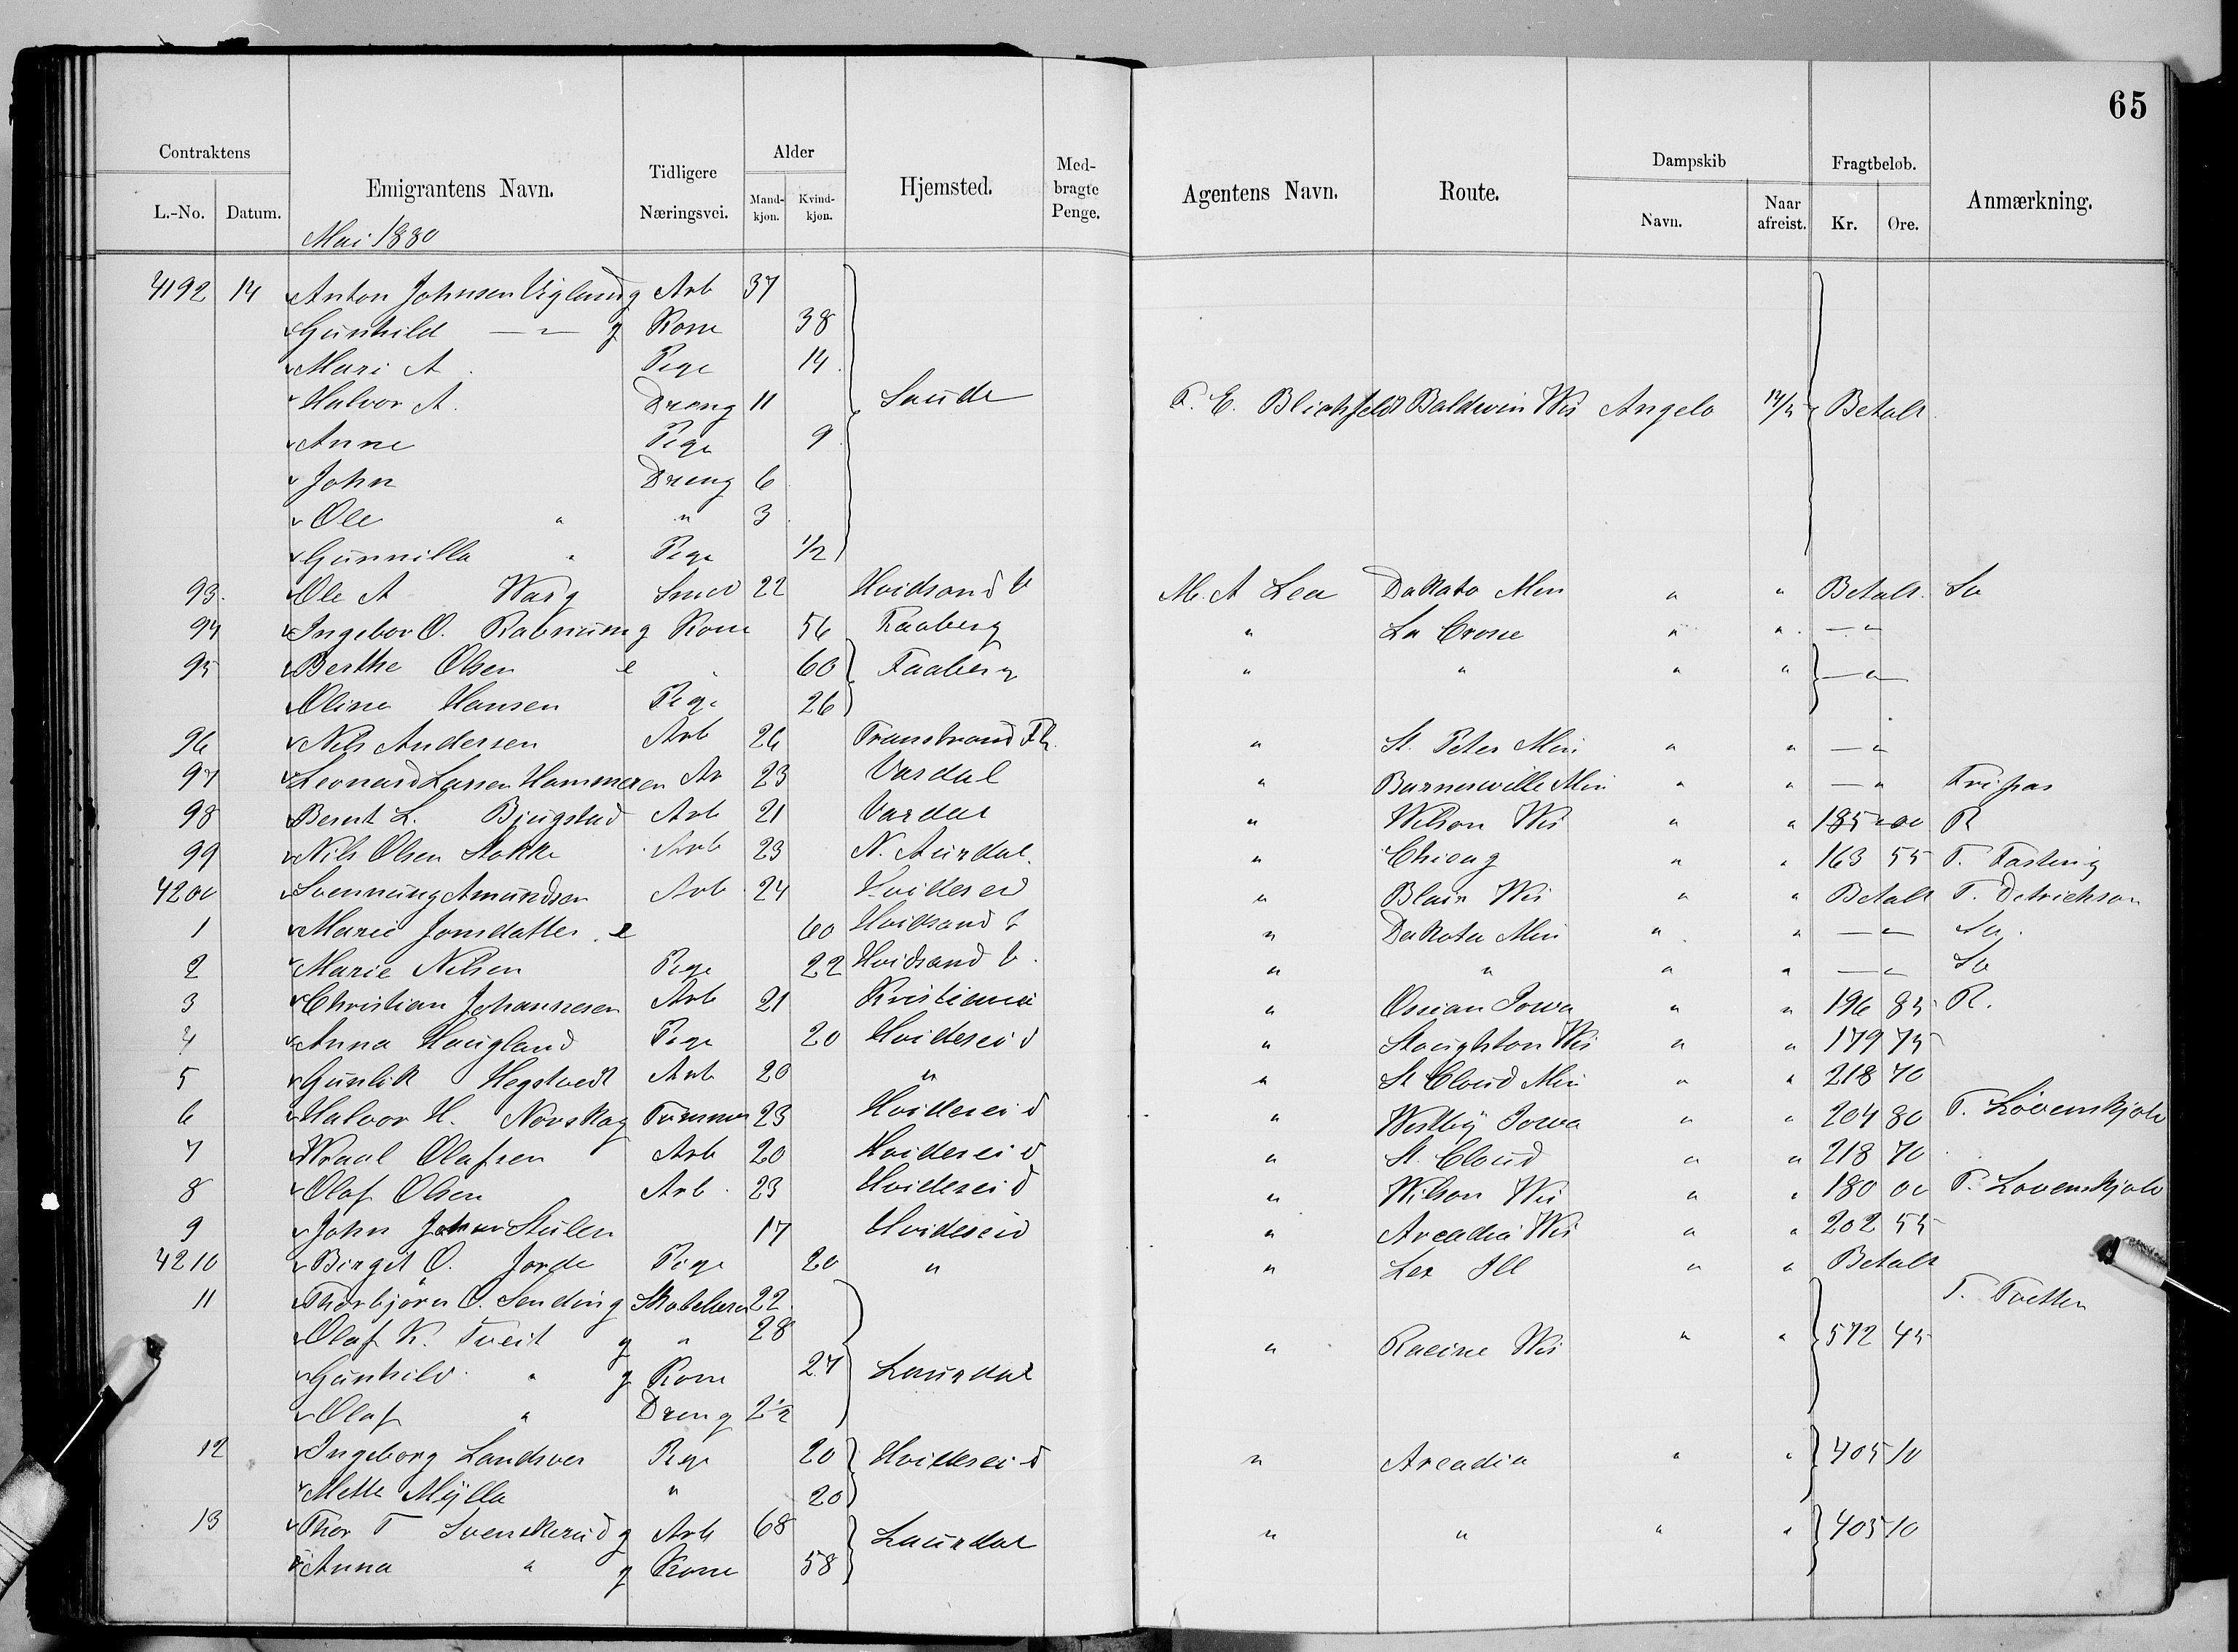 65
Contraktens Emigrantens Navn. Tidligere Næringsvei. Alder Hjemsted. Med-bragte Penge. Agentens Navn. Route. Dampskib Fragtbeløb. Anmærkning.
L.-No. Datum. Mand-kjøn. Kvind-kjøn. Navn. Naar afreist. Kr. Øre.
Mai 1880
4192 14 Anton Johnsen Vigland g Arb 37
Gunhild — " — g Kone 38
Mari A. Pige 14
Halvor A. Dreng 11 Saude T. E. Blichfeldt Baldwin Wis Angelo 14/5 Betalt
Anne Pige 9
John Dreng 6
Ole " " 3
Gunnilla " Pige 1/2
93. Ole A Warg Smed 22 Hvidsand V M. A Lea Dakota Min " " Betalt. Sv
94 Ingebor O. g Kone 56 Faaberg " La Crosse " " — " —
95 Berthe Olsen e " 60 Faaberg " " " " — " —
Oline Hansen Pige 26
96 Nils Andersen Arb 26 " St. Peter Min " " — "
97 Leonard Larsen Hammeren Ar 23 Vardal " Burnesville Min " " — " Fripas
98 Bernt L. Bjugstad Arb 21 Vardal " Wilson Wis " " 185 00 R
99 Nils Olsen Stokke Arb 23 N. Aurdal. " Chicag " " 163 55 T. Fasting
4200 Svennung Amundsen Arb 24 Hvideseid " Blair Wis " " Betalt T. Detrichson
1 Marie Jonsdatter e 60 Hvidsand V " Dakota Min " " — " — Sv.
2 Marie Nilsen Pige 22 Hvidsand V. " " " " — " — Sv
3 Christian Johannesen Arb 21 Kristiania " Ossian Iowa " " 196 85 R.
4 Anna Haugland Pige 20 Hvideseid " Stoughton Wis " " 179 75
5 Gunlik Hegstvedt Arb 20 " " St Cloud Min " " 218 70
6 Halvor H. Norskog Tømmer 23 Hvideseid " Westby Iowa " " 204 80 T. Løvenskjold
7 Wraal Olafsen Arb 20 Hvideseid " St. Cloud " " 218 70
8 Olaf Olsen Arb. 23 Hvideseid " Wilson Wis " " 180 00 T. Løvenskjold
9 John Johnsen Stulen 17 Hvideseid " Arcadia Wis " " 202 55
4210 Birgit O. Jorde Pige 20 " " Lee Ill " " Betalt
11 Thorbjørn O. Sending 22 T. Tvetten
Olaf K. Tveit g " 28 " Racine Wis " " 572 45
Gunhild " g Kone 27 Laurdal
Olaf " Dreng 2 1/2
12 Ingeborg Landsver Pige 20 Hvideseid " Arcadia " " 405 10
Mette Mylla " 20
13 Thor T Svenskerud g Arb 68 Laurdal " " " " 405 10
Anna " g Kone 58